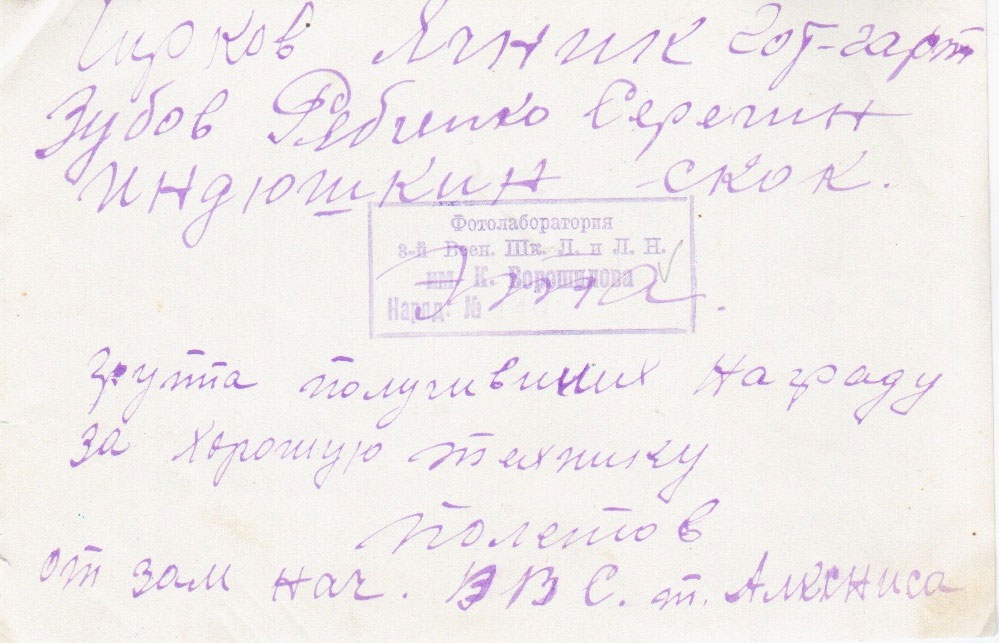 Чирков Ячник Гот-гарт
Зубов Рябченко Серегин
Индюшкин скок.
Фотолаборатория
3-й Воен. Шк. Л. и Л. Н.
им. К. Ворошилова
Наряд. №
Эта.
группа получивших награду
за хорошую технику
полетов
от зам нач. ВВС. т. Алксниса